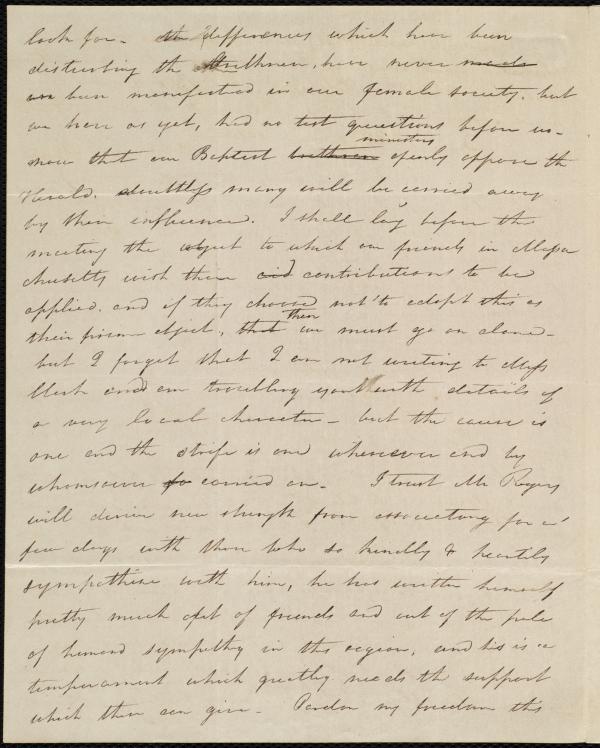 look for - the differences which have been
disturbing the brethren, have never made
an been manifested in our female society. but
we have as yet, had no test questions before us -
now that our Baptist brethren ministers openly oppose the
Herald. doubtless many will be carried away
by their influence. I shall lay before the
meeting the object to which our friends in Massa
chusetts wish their aid contributions to be
applied. and if they choose not to adopt this as
their prime object, that then we must go on alone -
but I forget that I am not writing to Miss
and am troubling you with details of
a very local character - but the cause is
one and the strife is one wherever and by
whomsoever fo carried on - I trust Mr Rogers
will derive new strength from associating for a
few days with those who so kindly & heartily
sympathise with him, he has written himself
pretty much out of friends and out of the pale
of human sympathy in this region, and his is a
temperament which greatly needs the support
which they can give - Pardon my freedom this